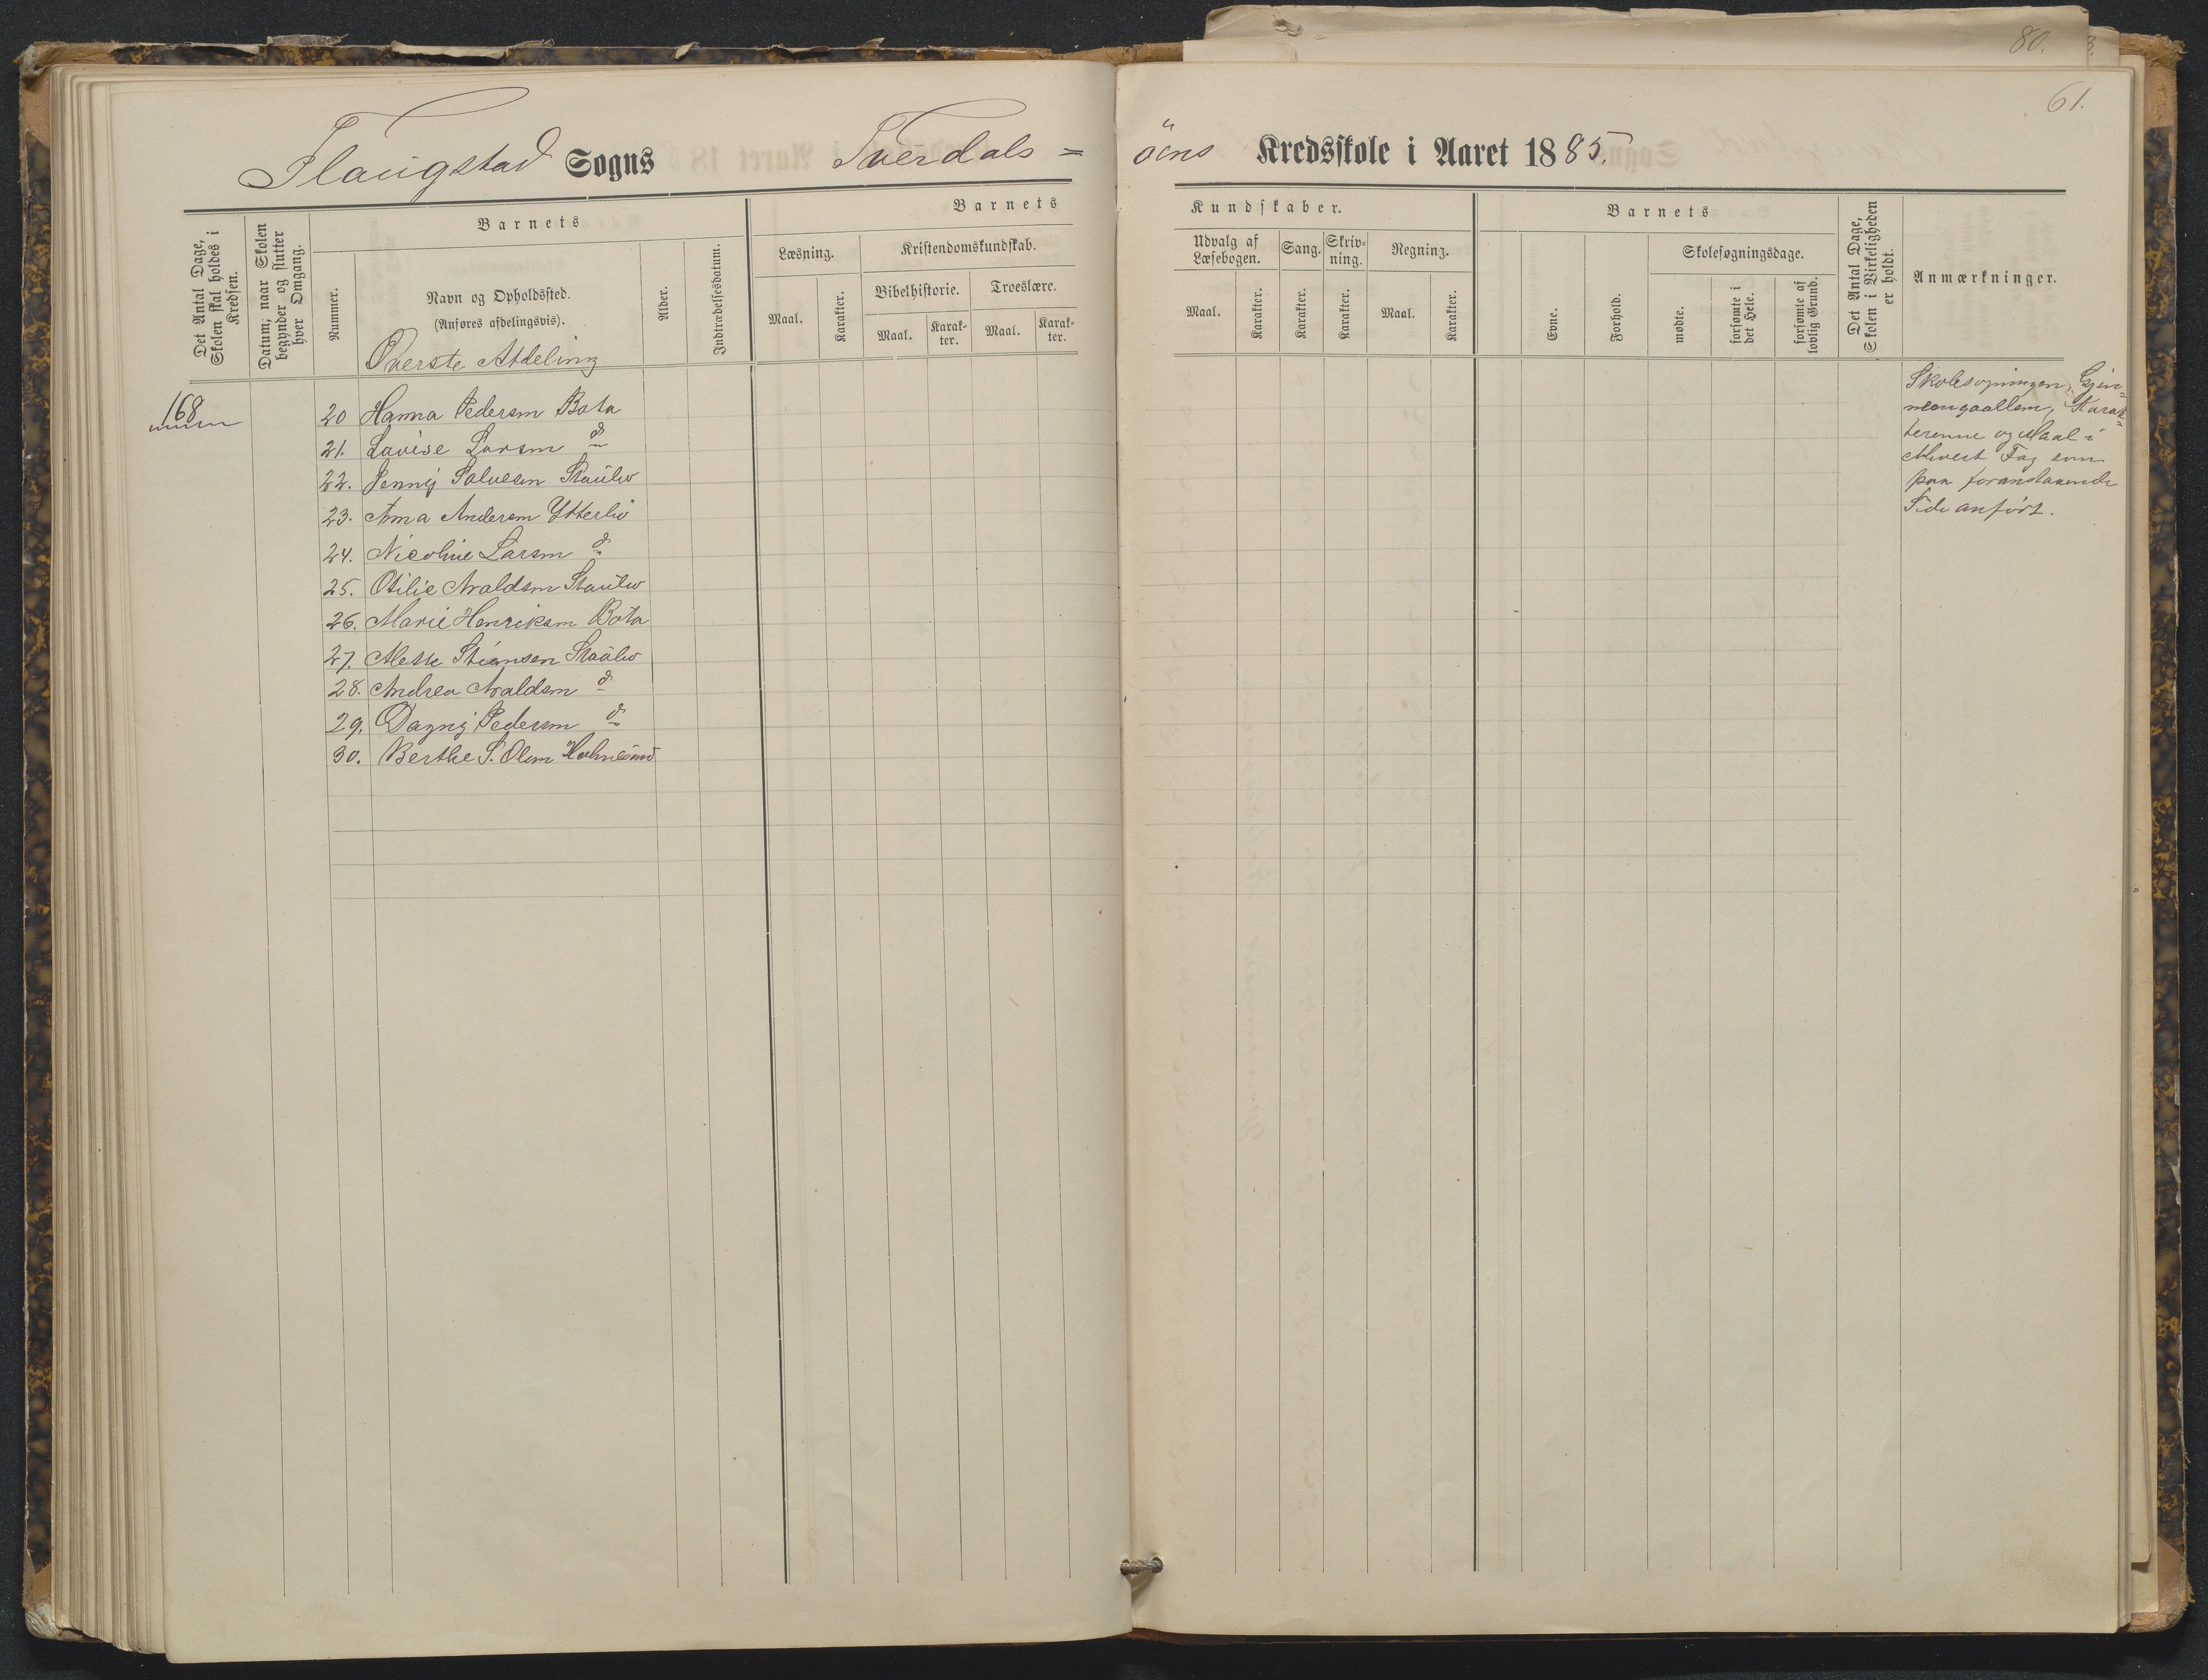 80.
61.
Flaugstad Sogns Tverdals =
öens Kredsskole i Aaret 1885.
Det Antal Dage, Skolen skal holdes i Kredsen.
Datum, naar Skolen begynder og slutter hver Omgang.
Barnets
Nummer.
Navn og Opholdssted.
(Anføres afdelingsvis).
Alder.
Indtrædelsesdatum.
Barnets
Læsning.
Kristendomskundskab.
Bibelhistorie.
Troeslære.
Maal.
Karakter.
Maal.
Karak-
ter.
Maal.
Karak-
ter.
Kundskaber.
Udvalg af
Læsebogen.
Sang.
Skriv-
ning.
Regning.
Maal.
Karakter.
Karakter.
Karakter.
Maal.
Karakter.
Barnets
Skolesøgningsdage.
Evne.
Forhold.
mødte.
forsømte i
det Hele.
forsømte af
lovlig Grund.
Det Antal Dage,
Skolen i Virkeligheden
er holdt.
Anmærkninger.
Øverste Afdeling
168
20 Hanna Pedersen Bota
21. Lovise Larsen d
22. Jenny Salvesen Staülw
23. Anna Andersen Ytterliö
24. Nicoline Larsen d
25. Otilie Avaldsen Staülw
26. Marie Henriksen Bota
27. Alette Stiansen Staülw
28. Andrea Avaldsen d
29. Dagny Pedersen d
30. Berthe S. Olsen
Skolesøgningen, Gjen-
Karak-
terenne og Maal i
Ethvert Fag som
paa foranstaaende
Side anført.